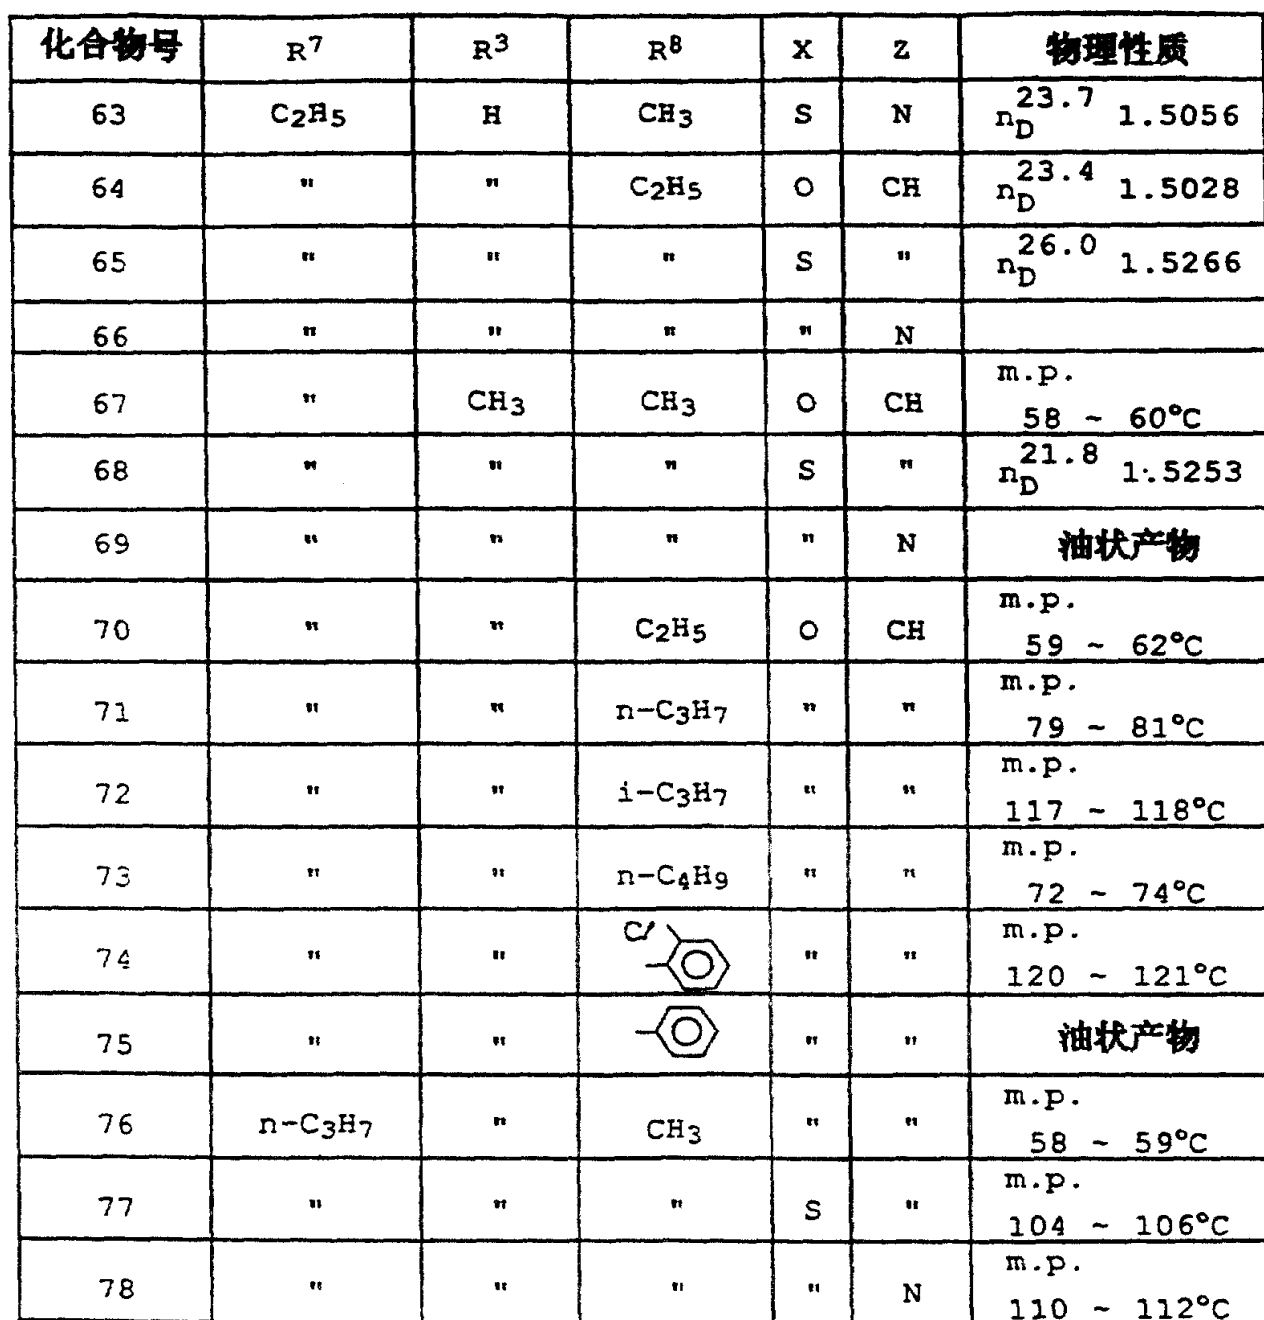 化合物号 R7 R3 R8 X Z 物理性质
63 C2H5 H CH3 S N nD23.7 1.5056
64 " " C2H5 O CH nD23.4 1.5028
65 " " " S " nD26.0 1.5266
66 " " " " N
67 " CH3 CH3 O CH m.p.
58 ~ 60°C
68 " " " S " nD21.8 1.5253
69 " " " " N 油状产物
70 " " C2H5 O CH m.p.
59 ~ 62°C
71 " " n-C3H7 " " m.p.
79 ~ 81°C
72 " " i-C3H7 " " m.p.
117 ~ 118°C
73 " " n-C4H9 " " m.p.
72 ~ 74°C
74 " " Cl " " m.p.
120 ~ 121°C
75 " " " " 油状产物
76 n-C3H7 " CH3 " " m.p.
58 ~ 59°C
77 " " " S " m.p.
104 ~ 106°C
78 " " " " N m.p.
110 ~ 112°C